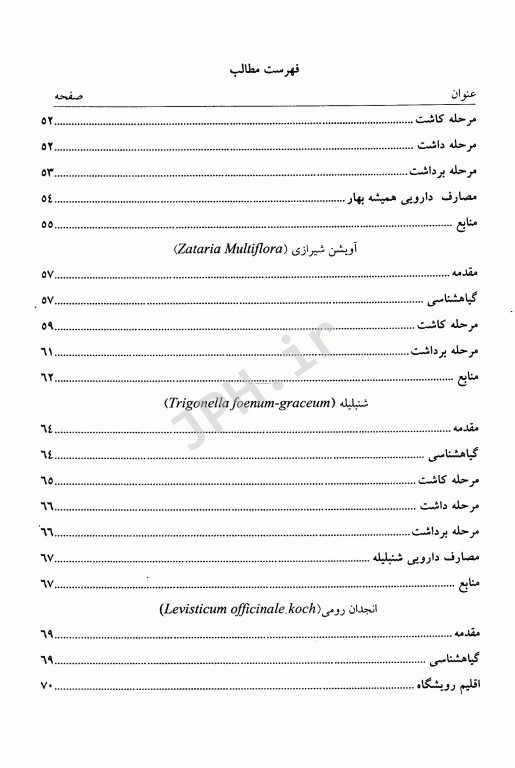 فهرست مطالب
عنوان صفحه
مرحله کاشت ........ ۵۲
مرحله داشت ........ ۵۲
مرحله برداشت ........ ۵۳
مصارف دارویی همیشه بهار ........ ۵٤
منابع ........ ۵۵
آویشن شیرازی (Zataria Multiflora)
مقدمه ........ ۵۷
گیاهشناسی ........ ۵۷
مرحله کاشت ........ ۵۹
مرحله برداشت ........ ٦۱
منابع ........ ٦۲
شنبلیله (Trigonella foenum-graceum)
مقدمه ........ ٦٤
گیاهشناسی ........ ٦٤
مرحله کاشت ........ ٦۵
مرحله داشت ........ ٦٦
مرحله برداشت ........ ٦٦
مصارف دارویی شنبلیله ........ ٦۷
منابع ........ ٦۷
انجدان رومی(Levisticum officinale.koch)
مقدمه ........ ٦۹
گیاهشناسی ........ ٦۹
اقلیم رویشگاه ........ ۷۰
JPH.ir